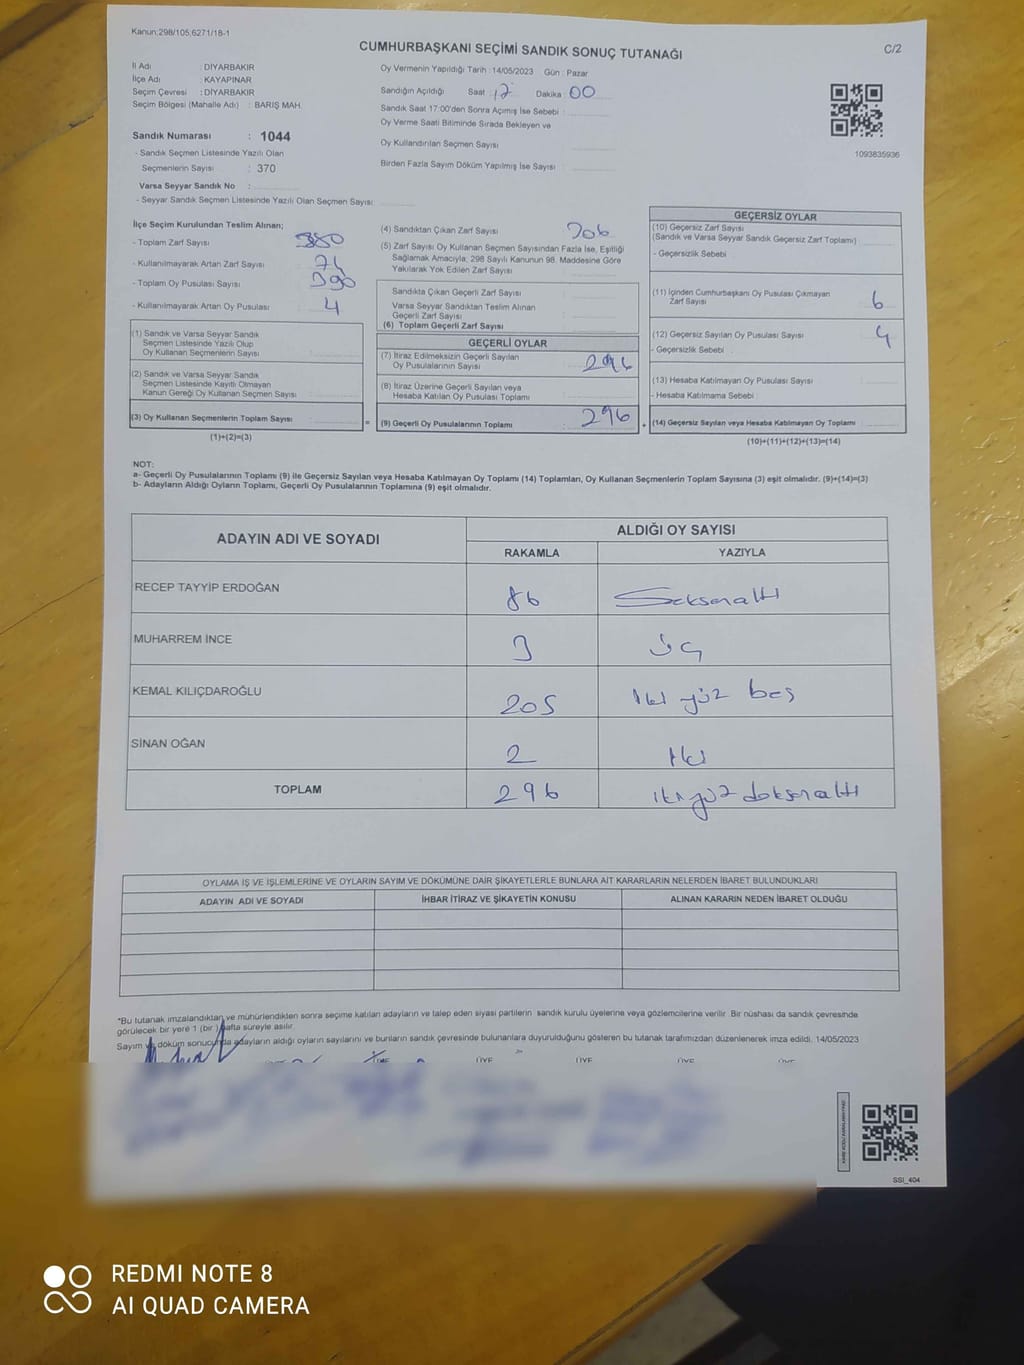 Kanun;298/105,6271/18-1
CUMHURBAŞKANI SEÇİMİ SANDIK SONUÇ TUTANAĞI
C/2
İl Adı : DİYARBAKIR
İlçe Adı : KAYAPINAR
Seçim Çevresi : DİYARBAKIR
Seçim Bölgesi (Mahalle Adı) : BARIŞ MAH.
Oy Vermenin Yapıldığı Tarih : 14/05/2023 Gün : Pazar
Sandığın Açıldığı Saat : 17 Dakika : 00
Sandık Saat 17:00'den Sonra Açımış İse Sebebi :
Oy Verme Saati Bitiminde Sırada Bekleyen ve
Oy Kullandırılan Seçmen Sayısı
Birden Fazla Sayım Döküm Yapılmış İse Sayısı :
1093835936
Sandık Numarası : 1044
- Sandık Seçmen Listesinde Yazılı Olan
Seçmenlerin Sayısı : 370
Varsa Seyyar Sandık No :
- Seyyar Sandık Seçmen Listesinde Yazılı Olan Seçmen Sayısı:
İlçe Seçim Kurulundan Teslim Alınan;
- Toplam Zarf Sayısı : 380
- Kullanılmayarak Artan Zarf Sayısı : 74
- Toplam Oy Pusulası Sayısı : 390
- Kullanılmayarak Artan Oy Pusulası : 4
(1) Sandık ve Varsa Seyyar Sandık
Seçmen Listesinde Yazılı Olup
Oy Kullanan Seçmenlerin Sayısı :
(2) Sandık ve Varsa Seyyar Sandık
Seçmen Listesinde Kayıtlı Olmayan
Kanun Gereği Oy Kullanan Seçmen Sayısı :
(3) Oy Kullanan Seçmenlerin Toplam Sayısı :
(1)+(2)=(3)
(4) Sandıktan Çıkan Zarf Sayısı : 306
(5) Zarf Sayısı Oy Kullanan Seçmen Sayısından Fazla İse, Eşitliği
Sağlamak Amacıyla, 298 Sayılı Kanunun 98. Maddesine Göre
Yakılarak Yok Edilen Zarf Sayısı :
Sandıkta Çıkan Geçerli Zarf Sayısı :
Varsa Seyyar Sandıktan Teslim Alınan
Geçerli Zarf Sayısı :
(6) Toplam Geçerli Zarf Sayısı
GEÇERLİ OYLAR
(7) İtiraz Edilmeksizin Geçerli Sayılan
Oy Pusulalarının Sayısı : 296
(8) İtiraz Üzerine Geçerli Sayılan veya
Hesaba Katılan Oy Pusulası Toplamı :
(9) Geçerli Oy Pusulalarının Toplamı : 296
GEÇERSİZ OYLAR
(10) Geçersiz Zarf Sayısı
(Sandık ve Varsa Seyyar Sandık Geçersiz Zarf Toplamı) :
- Geçersizlik Sebebi :
(11) İçinden Cumhurbaşkanı Oy Pusulası Çıkmayan
Zarf Sayısı : 6
(12) Geçersiz Sayılan Oy Pusulası Sayısı : 4
- Geçersizlik Sebebi :
(13) Hesaba Katılmayan Oy Pusulası Sayısı :
- Hesaba Katılmama Sebebi :
(14) Geçersiz Sayılan veya Hesaba Katılmayan Oy Toplamı :
(10)+(11)+(12)+(13)=(14)
NOT:
a- Geçerli Oy Pusulalarının Toplamı (9) ile Geçersiz Sayılan veya Hesaba Katılmayan Oy Toplamı (14) Toplamları, Oy Kullanan Seçmenlerin Toplam Sayısına (3) eşit olmalıdır. (9)+(14)=(3)
b- Adayların Aldığı Oyların Toplamı, Geçerli Oy Pusulalarının Toplamına (9) eşit olmalıdır.
ADAYIN ADI VE SOYADI
ALDIĞI OY SAYISI
RAKAMLA YAZIYLA
RECEP TAYYİP ERDOĞAN 86 Seksenaltı
MUHARREM İNCE 3 üç
KEMAL KILIÇDAROĞLU 205 iki yüz beş
SİNAN OĞAN 2 iki
TOPLAM 296 iki yüz doksenaltı
OYLAMA İŞ VE İŞLEMLERİNE VE OYLARIN SAYIM VE DÖKÜMÜNE DAİR ŞİKAYETLERLE BUNLARA AİT KARARLARIN NELERDEN İBARET BULUNDUKLARI
ADAYIN ADI VE SOYADI İHBAR İTİRAZ VE ŞİKAYETİN KONUSU ALINAN KARARIN NEDEN İBARET OLDUĞU
*Bu tutanak imzalandıktan ve mühürlendikten sonra seçime katılan adayların ve talep eden siyasi partilerin sandık kurulu üyelerine veya gözlemcilerine verilir. Bir nüshası da sandık çevresinde
görülecek bir yere 1 (bir) hafta süreyle asılır.
Sayım ve döküm sonucunda adayların aldığı oyların sayılarını ve bunların sandık çevresinde bulunanlara duyurulduğunu gösteren bu tutanak tarafımızdan düzenlenerek imza edildi. 14/05/2023
ÜYE ÜYE ÜYE ÜYE
SSI_404
REDMI NOTE 8
AI QUAD CAMERA